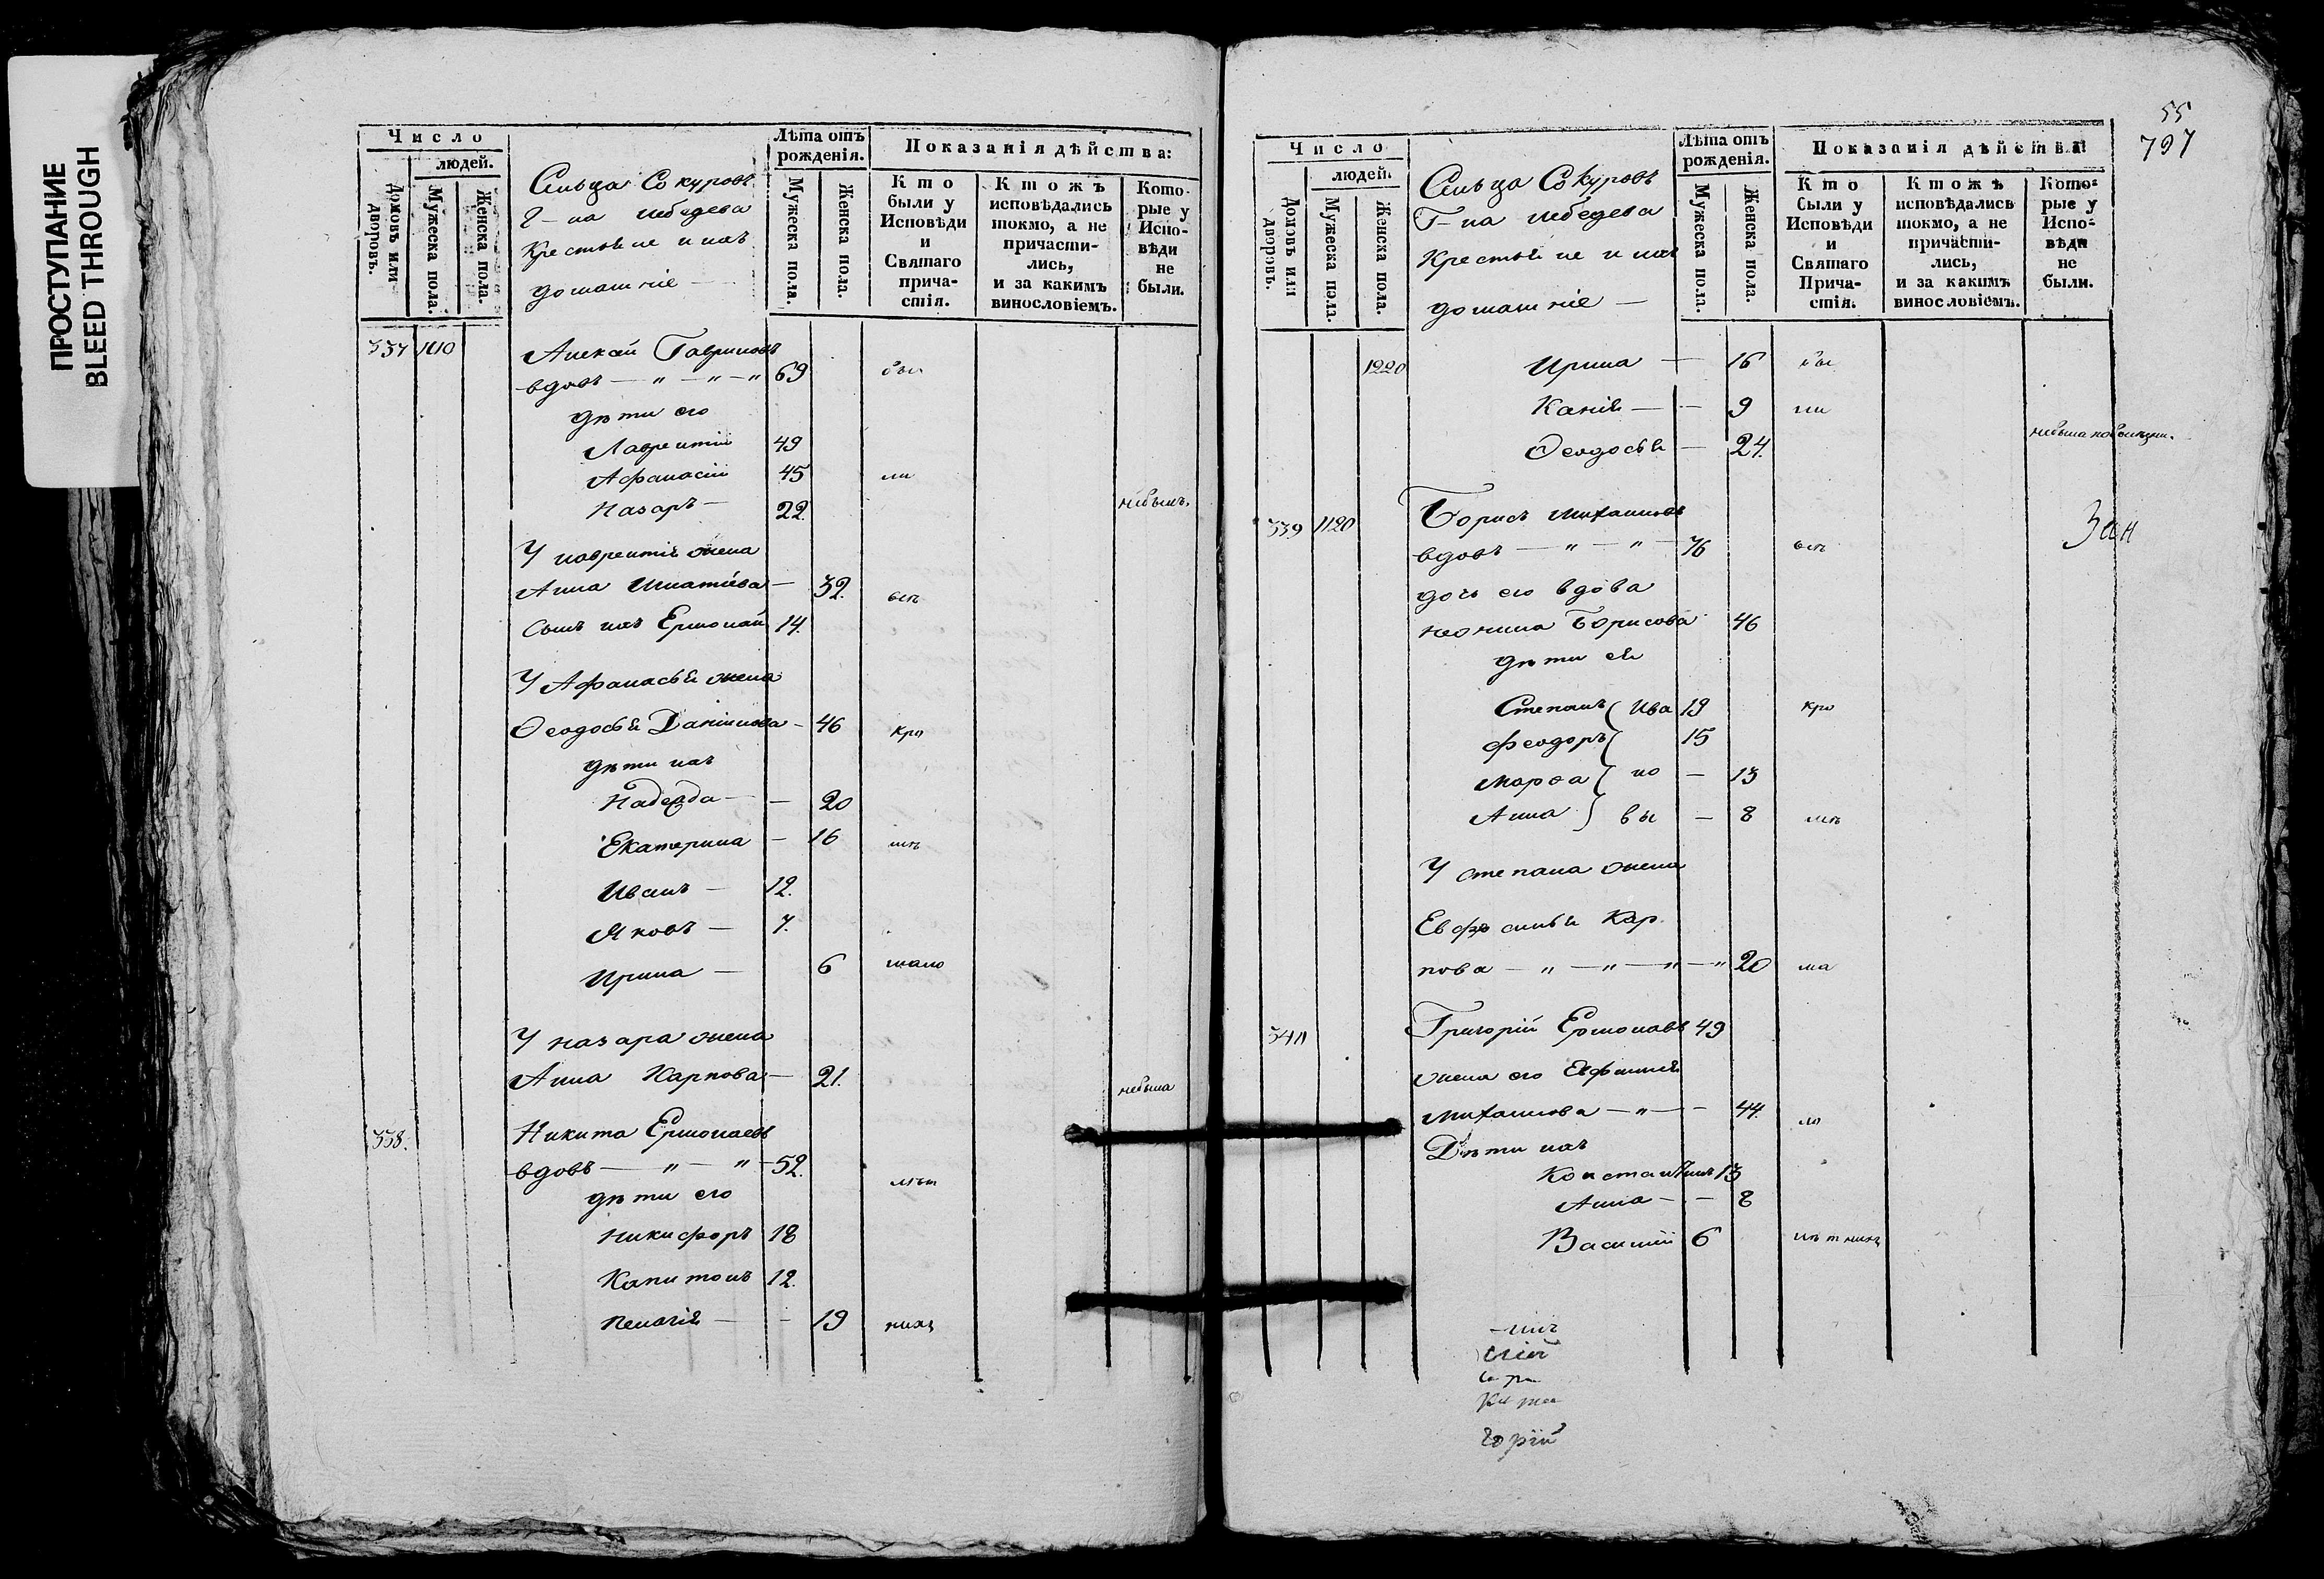 ПРОСТУПАНИЕ
BLEED THROUGH
Число
людей.
Домовъ или дворовъ.
Мужеска пола.
Женска пола.
Сельца Сокуровъ
Г-на Лебедева
Крестьяне и ихъ
домашніе —
Лѣта отъ рожденія.
Мужеска пола.
Женска пола.
Показанія дѣйства:
Кто были у Исповѣди и Святаго причастія.
Ктожъ исповѣдались токмо, а не причастились, и за какимъ винословіемъ.
Которые у Исповѣди не были.
337 1110 Алексѣй Гавриловъ
вдовъ — " — " — " 69 был
дѣти его
Лаврентій 49
Афанасій 45 ли
Назаръ — 22. небылъ.
У Лаврентія жена
Анна Игнатіева — 32. всѣ
Сынъ ихъ Ермолай 14.
У Афанасья жена
Ѳеодосья Даніилова — 46 кро
дѣти ихъ
Надежда — — 20
Екатерина — 16 мѣ
Иванъ — 12.
Яковъ — 7.
Ирина — 6 мало
У Назара жена
Анна Карпова — 21. небыла
338. Никита Ермолаевъ
вдовъ — " — " — 52. лѣт
дѣти его
Никифоръ 18
Капитонъ 12.
Пелагія — — 19 нихъ
55
797
Число
людей.
Домовъ или дворовъ.
Мужеска пола.
Женска пола.
Сельца Сокуровъ
Г-на Лебедева
Крестьяне и ихъ
домашніе —
Лѣта отъ рожденія.
Мужеска пола.
Женска пола.
Показанія дѣйства:
Кто были у Исповѣди и Святаго Причастія.
Ктожъ исповѣдались токмо, а не причастились, и за какимъ винословіемъ.
Которые у Исповѣди не были.
1220 Ирина — 16 бы
Ксенія — — 9 ли
Ѳеодосья — 24.
339 1120 Борисъ Михаиловъ
вдовъ — " — " — 76 всѣ
дочь его вдова
Неонила Борисова 46
дѣти ея
Степанъ ( Ива 19 кро
Феодоръ ( 15
Марѳа ( но — 13
Анна ) вы — 8 мѣ
У Степана жена
Евфросинья Кар
пова — " — " — " — " 20 ма
340 Григорій Ермолаевъ 49
жена его Евфимия
Михаилова — " — — 44. ло
Дѣти ихъ
Константинъ 13
Анна — — 8
Василій 6 лѣтнихъ
горій